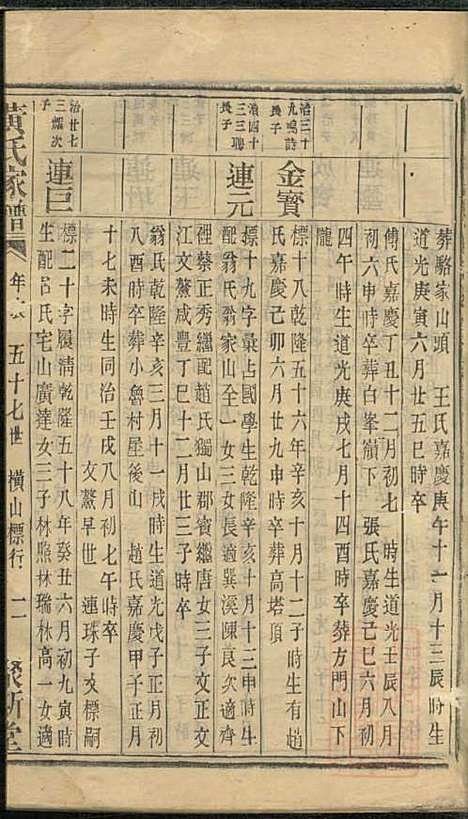 葬駱家山頭　王氏嘉慶庚午十一月十三辰時生
道光庚寅六月廿五巳時卒
傅氏嘉慶丁丑十二月初七　時生道光壬辰八月
初六申時卒葬白峯嶺下　張氏嘉慶己巳六月初
四午時生道光庚戌七月十四酉時卒葬方門山下
隴
治三十
九鳴詩
長子
金寳
標十八乾隆五十六年辛亥十月十二子時生有趙
氏嘉慶己卯六月廿九申時卒葬高塔頂
濱四十
三三聘
長子
連元
標十九字彙占國學生乾隆辛亥十月十三申時生
配翁氏翁家山全一女三女長適巽溪陳良次適齊
徑蔡正秀繼配趙氏獨山郡賓繼唐女三子文正文
江文鰲咸豐丁巳十二月廿三子時卒
翁氏乾隆辛亥三月十一戌時生道光戊子正月初
八酉時卒葬小魯村屋後山　趙氏嘉慶甲子正月
十七未時生同治壬戌八月初七午時卒
文鰲早世　連珠子文標嗣
治廿七
三耀次
子
連巨
標二十字履清乾隆五十八年癸丑六月初九寅時
生配呂氏宅山廣達女三子林照林瑞林高一女適
黃氏家譜
年　五十七世　橫山標行　二